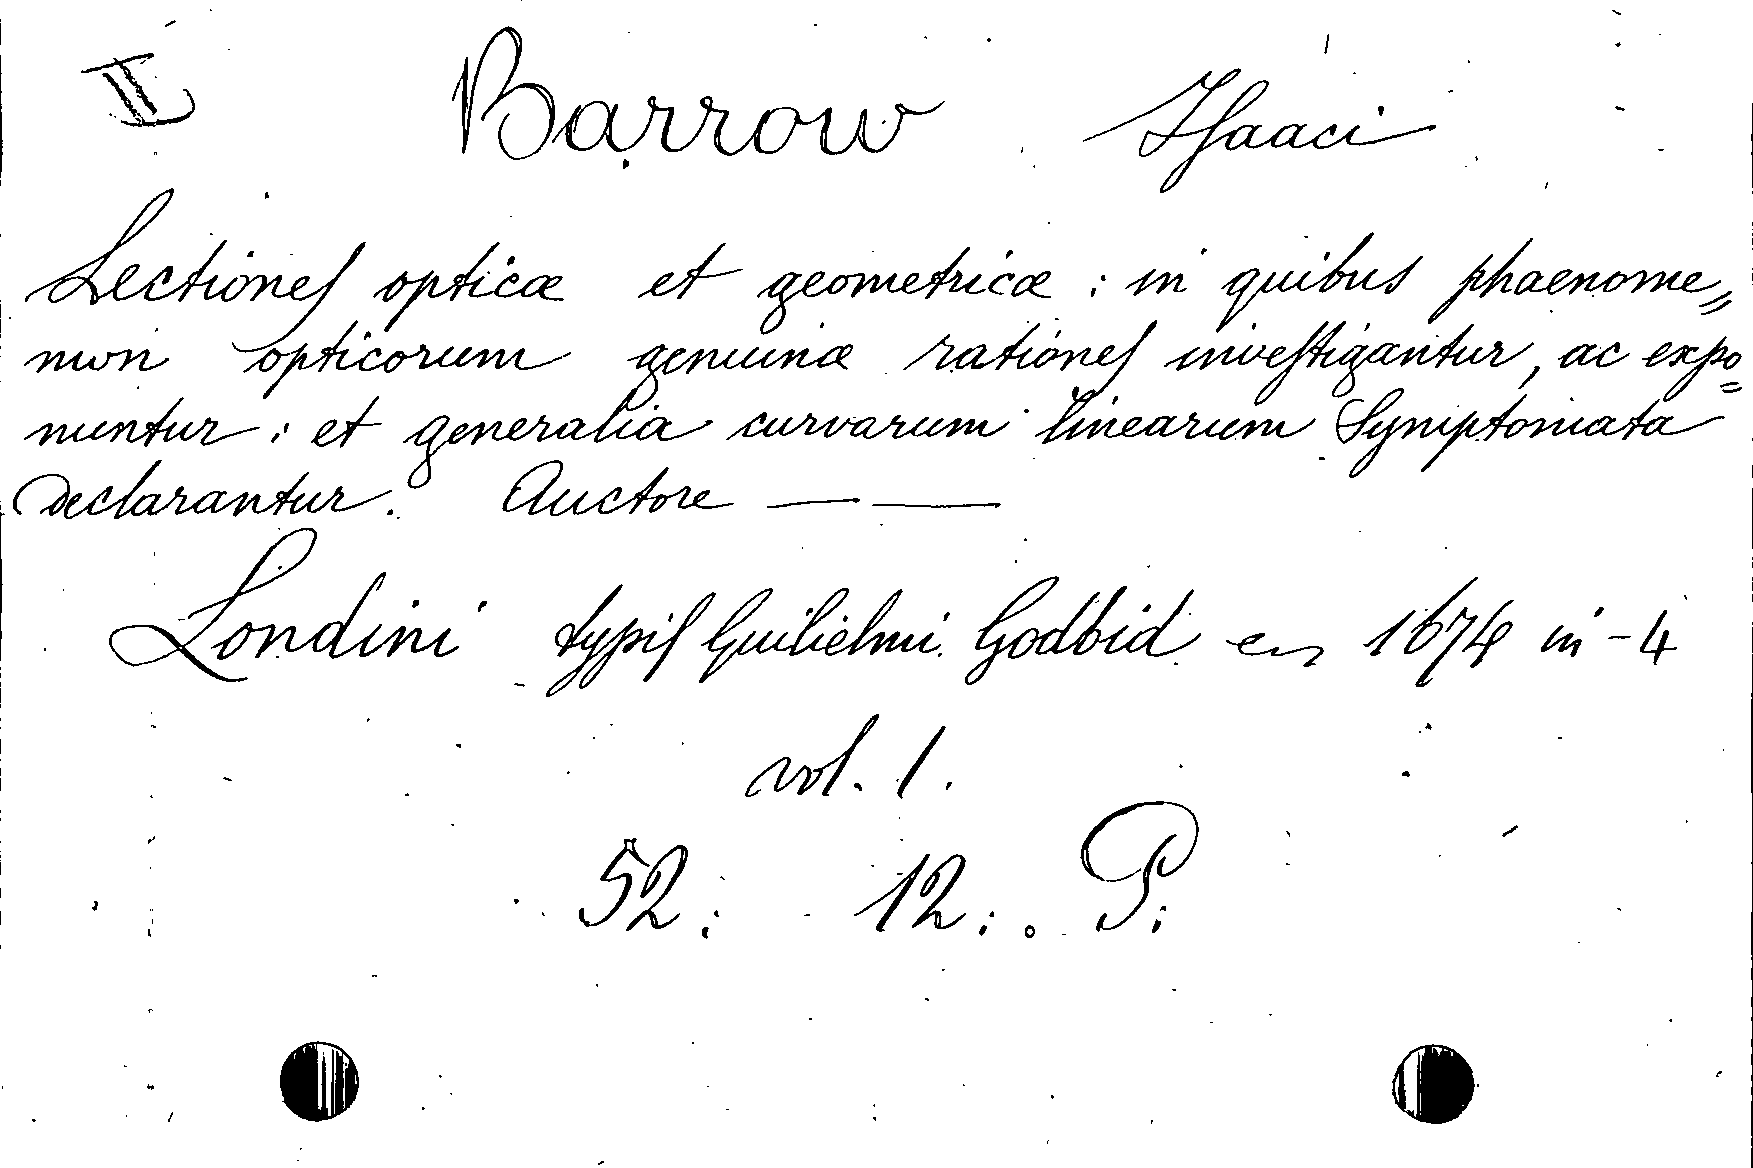 II Barrow Isaaci
Lectiones opticæ et geometricæ : in quibus phaenome„
nωn opticorum genuinæ rationes investigantur, ac expo=
nuntur : et generalia curvarum linearum Symptomata
declarantur. Auctore — —
Londini typis Guilielmi Godbid en 1674 in-4
vol. 1.
52: 12: . P.